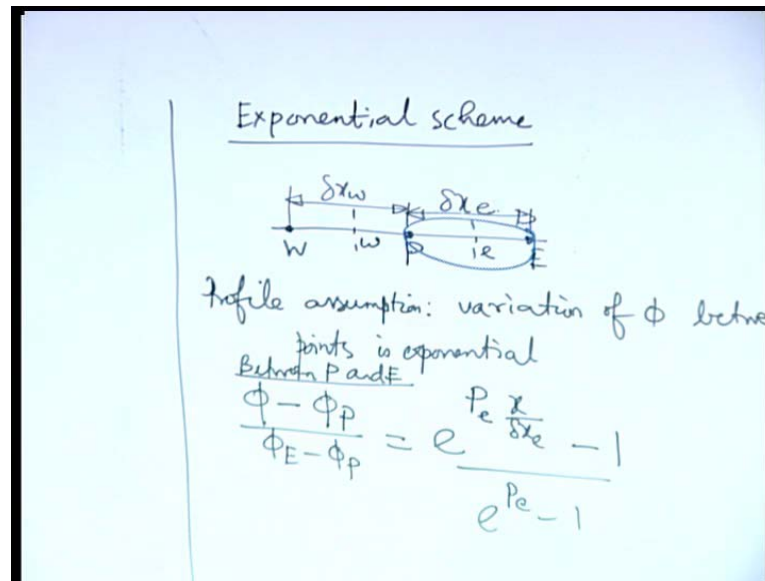 Exponential scheme
δxw δxe
W w P e E
Profile assumption: variation of ϕ betwe
points is exponential
Between P and E
ϕ - ϕP / ϕE - ϕP = e^(Pe x/δxe) - 1 / e^(Pe) - 1